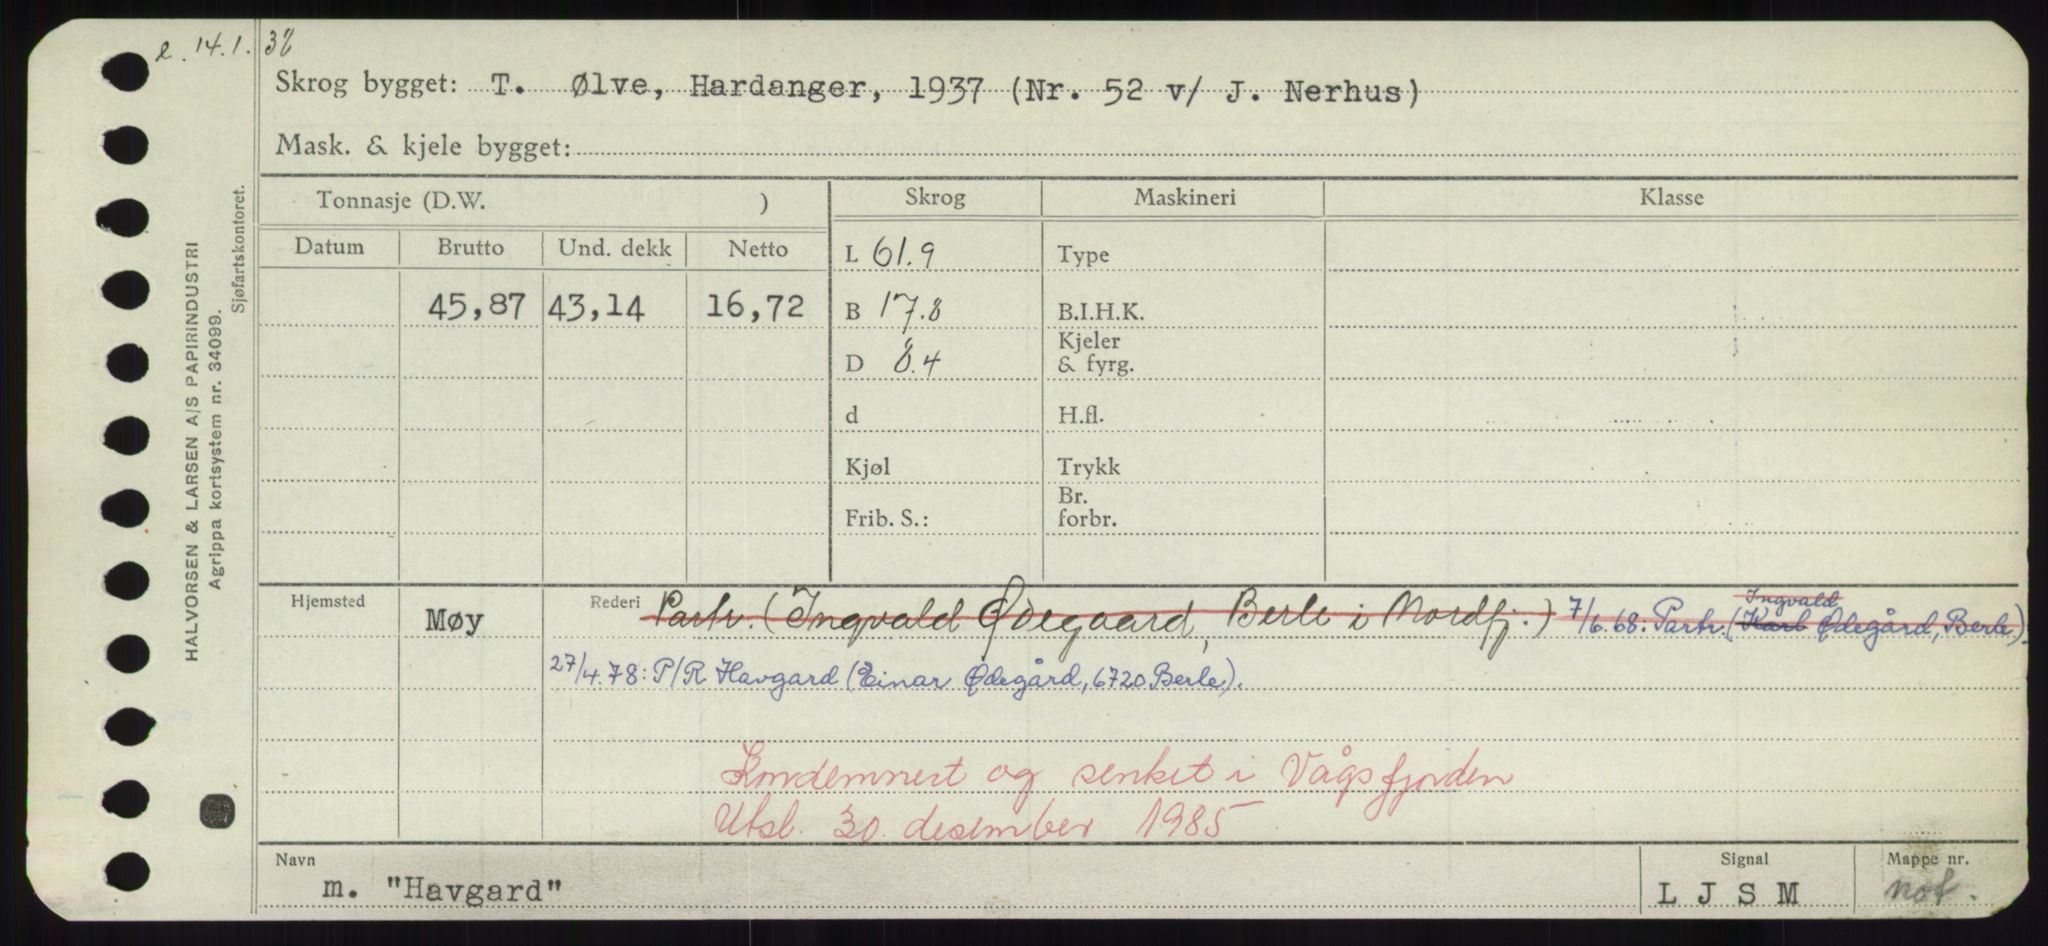 e. 14.1.38
Skrog bygget: T. Ølve, Hardanger, 1937 (Nr. 52 v/ J. Nerhus)
Mask. & kjele bygget:
Tonnasje (D.W. ) Skrog Maskineri Klasse
Datum Brutto Und. dekk Netto
L 61.9 Type
45,87 43,14 16,72
B 17.8 B.I.H.K.
D 8.4 Kjeler & fyrg.
d H.fl.
Kjøl Trykk
Frib. S.: Br. forbr.
Hjemsted Møy Rederi Partr. (Ingvald Ødegaard, Berle i Nordfj.) 7/6.68: Partr. (Karl Ingvald Ødegård, Berle).
27/4.78: P/R Havgard (Einar Ødegård, 6720 Berle).
Kondemnert og senket i Vågsfjorden
Utsl. 30. desember 1985
Navn Signal Mappe nr.
m. "Havgard" L J S M not.
HALVORSEN & LARSEN A/S PAPIRINDUSTRI
Agrippa kortsystem nr. 34099.
Sjøfartskontoret.